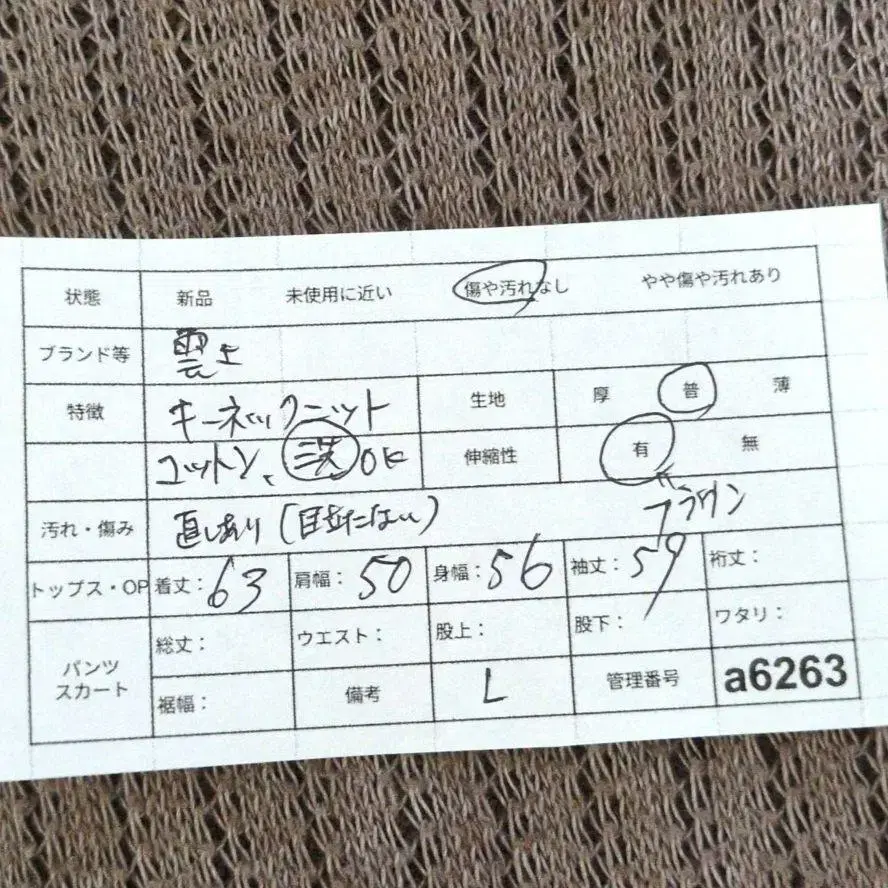 状態 新品 未使用に近い 傷や汚れなし やや傷や汚れあり
ブランド等 雲上
特徴 キーネックニット 生地 厚 普 薄
コットン、洗OK 伸縮性 有 無
汚れ・傷み 直しあり(目立たない) ブラウン
トップス・OP 着丈:63 肩幅:50 身幅:56 袖丈:59 裄丈:
パンツ スカート 総丈: ウエスト: 股上: 股下: ワタリ:
裾幅: 備考 L 管理番号 a6263